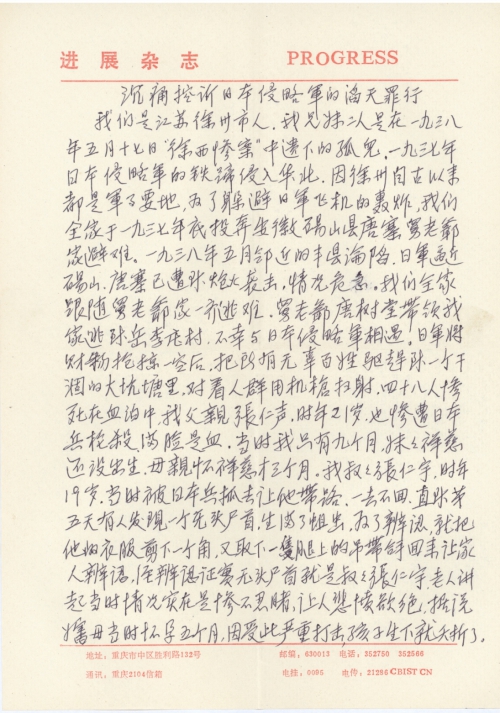 进展杂志 PROGRESS
沉痛控訴日本侵略軍的滔天罪行
我们是江苏徐州市人，我兄妹二人是在一九三八
年五月十七日"徐西惨案"中遗下的孤児。一九三七年
日本侵略軍的铁蹄侵入华北，因徐州自古以来
都是軍事要地，为了躲避日軍飞机的轰炸，我们
全家于一九三七年底投奔安徽砀山县唐寨舅老爺
家避难。一九三八年五月邻近的丰县淪陷，日軍逼近
砀山，唐寨已遭到炮火袭击，情况危急。我们全家
跟随舅老爺家一齐逃难。舅老爺唐树堂带领我
家逃到岳李庄村，不幸与日本侵略軍相遇。日軍将
财物抢掠一空后，把所有无辜百姓驱趕到一个干
涸的大坑塘里，对着人群用机槍扫射，四十八人惨
死在血泊中，我父親張仁声，时年21岁，也惨遭日本
兵枪殺，满脸是血。当时我只有九个月，妹々祥慈
还没出生，母親怀祥慈才三个月。我叔々張仁宇，时年
19岁，当时被日本兵抓去让他带路，一去不回，直到第
五天有人发現一个无头尸首，生满了蛆虫，为了辨認，就把
他的衣服剪下一个角，又取下一隻腿上的吊带拿回来让家
人辨認，经辨認证实无头尸首就是叔々張仁宇，老人讲
起当时情况实在是惨不忍睹，让人悲愤欲绝，据说
嬸母当时怀孕五个月，因受此严重打击，孩子生下就夭折了。
地址：重庆市中区胜利路132号 邮编：630013 电话：352750 352566
通讯：重庆2104信箱 电挂：0095 电传：21286 CBIST CN